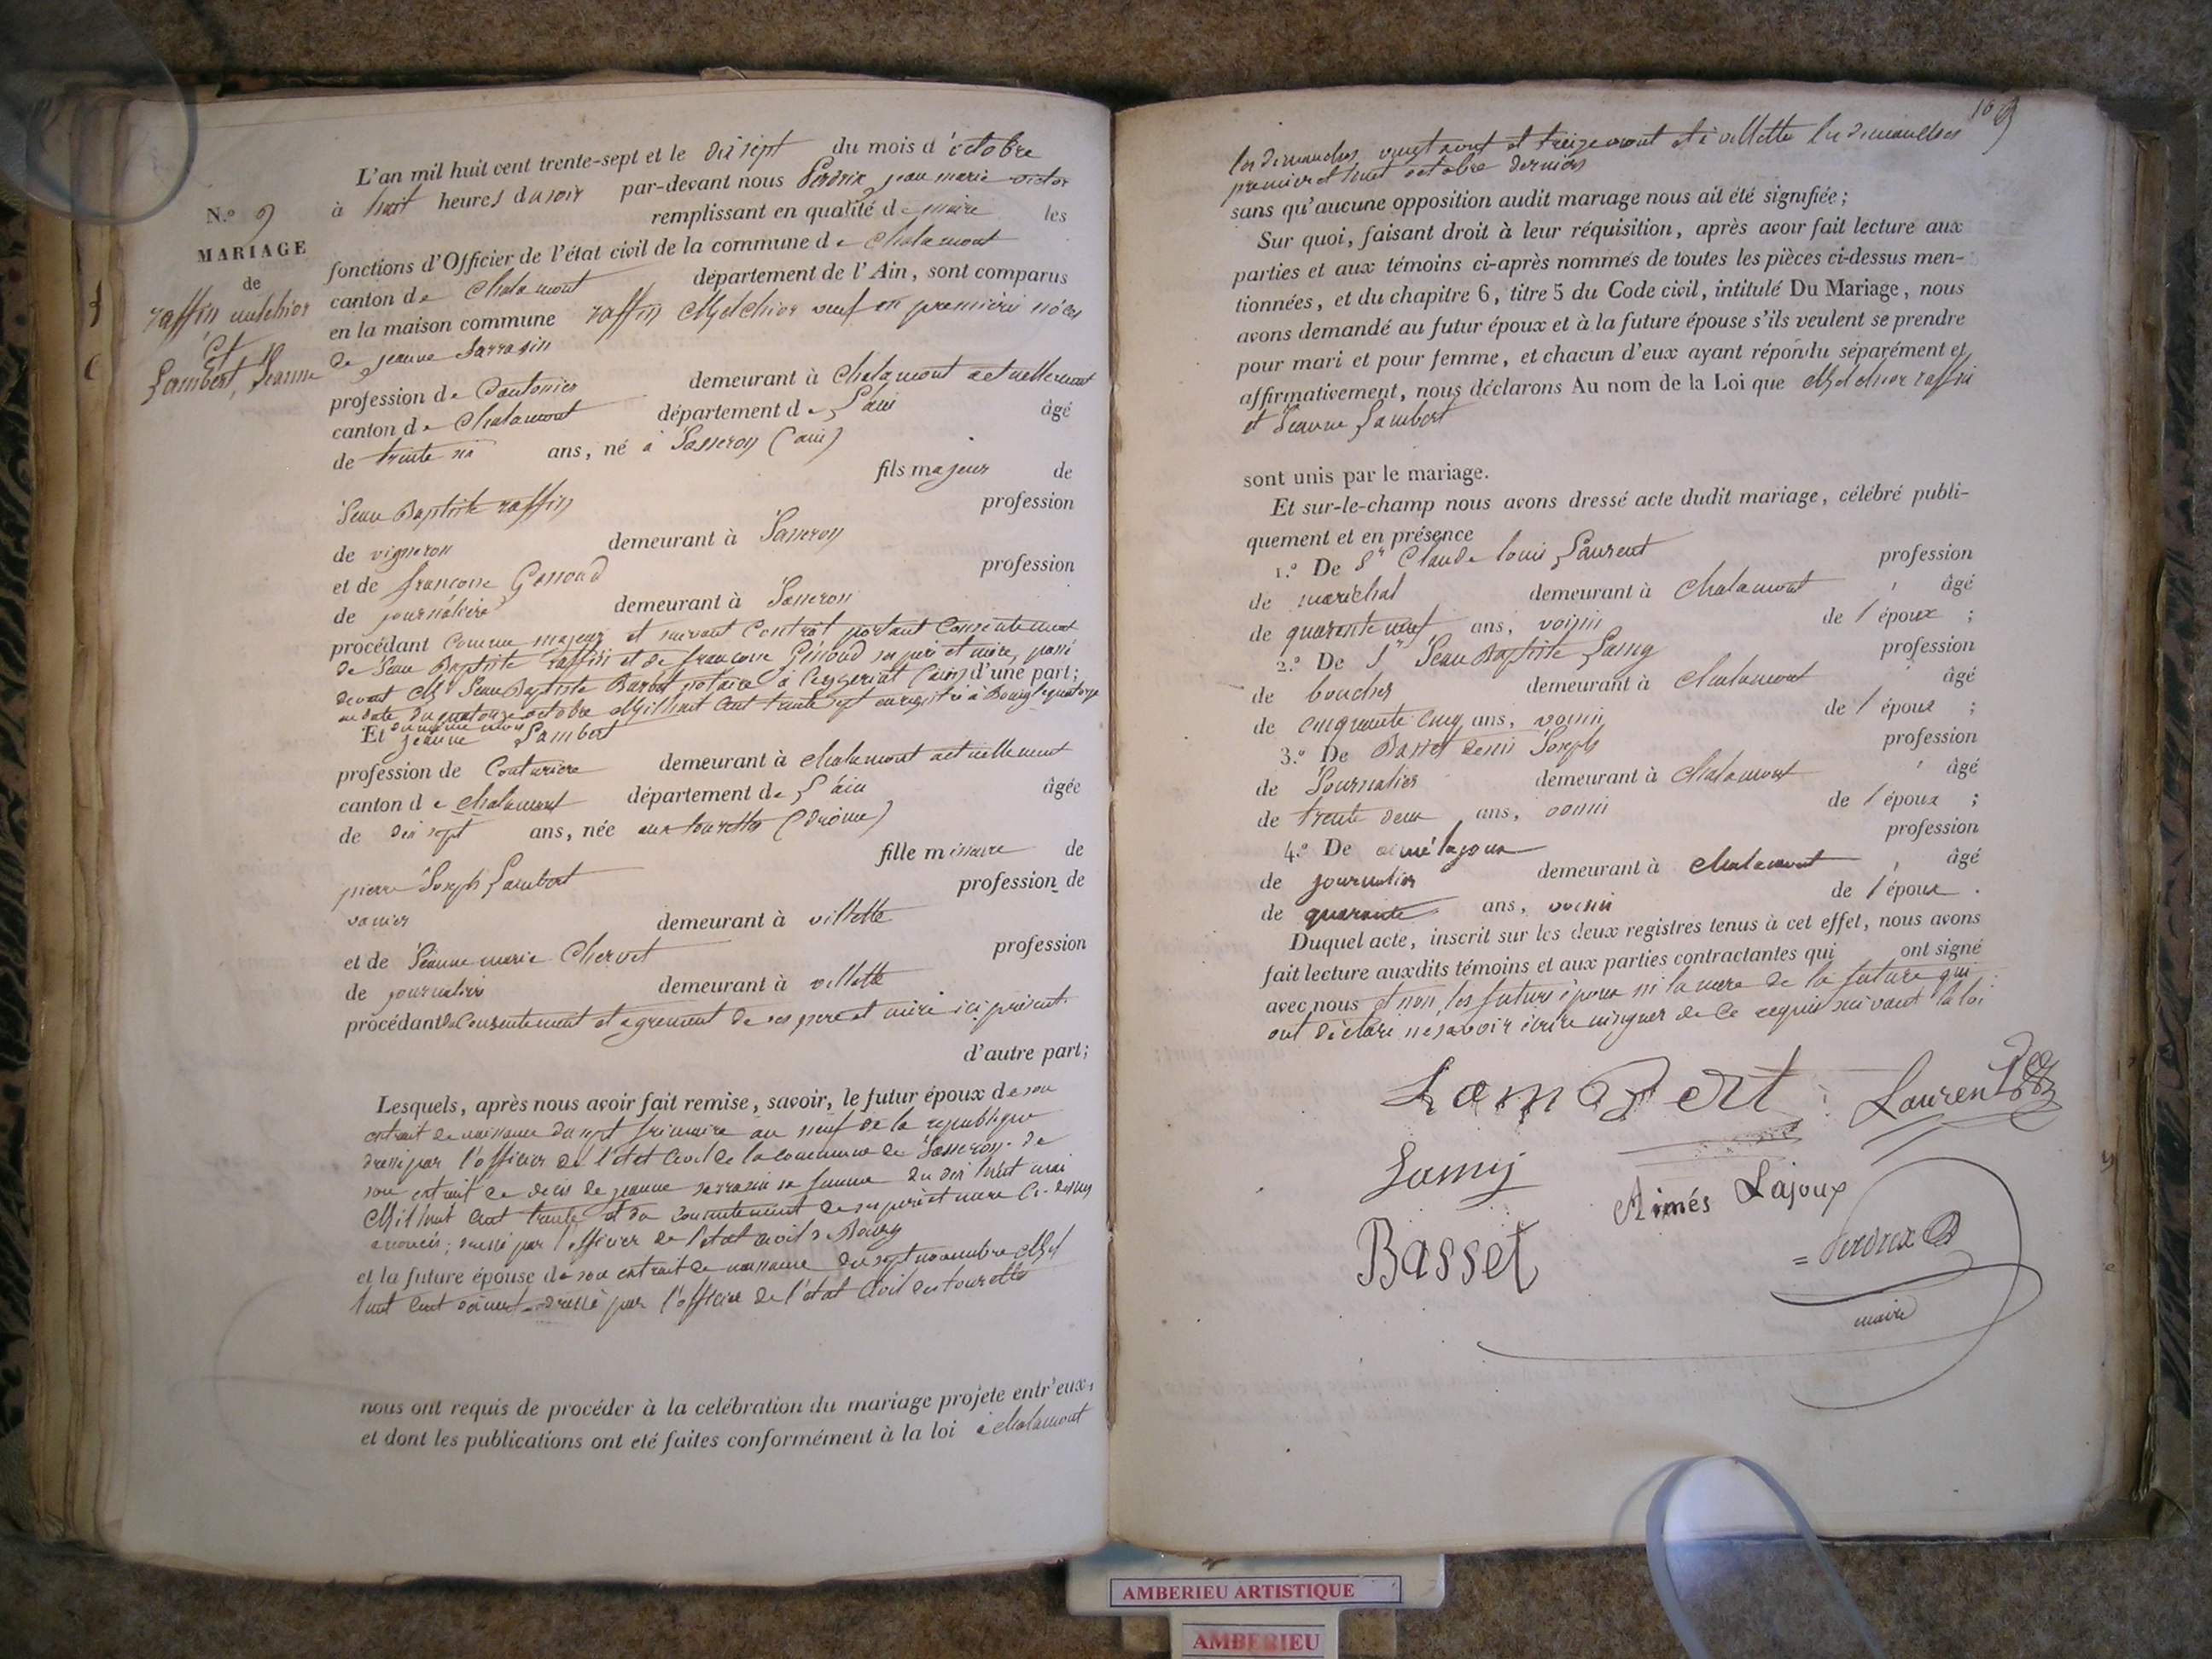 N.o 9
MARIAGE
de
raffin melchior
et
Lambert, Jeanne
L'an mil huit cent trente-sept et le dix sept du mois d'octobre
à huit heures du soir par-devant nous Perdrix jean marie victor
remplissant en qualité de maire les
fonctions d'Officier de l'état civil de la commune de chalamont
canton de chalamont département de l'Ain, sont comparus
en la maison commune raffin Melchior veuf en premières nôces
de jeanne Sarrasin
profession de Cantonier demeurant à Chalamont actuellement
canton de Chalamont département de L'ain âgé
de trente six ans, né à Jasseron (ain)
fils majeur de
Jean Baptiste raffin profession
de vigneron demeurant à Jasseron
et de françoise Genoud profession
de journalière demeurant à Jasseron
procédant comme majeur et suivant Contrat portant Consentement
de Jean Baptiste raffin et de francoise Genoud ses père et mère, passé
devant Me Jean Baptiste notaire à Ceyzeriat (ain) d'une part;
en date du quatorze octobre Mil huit Cent trente sept enregistré à Bourg le quatorze
du même mois
Et jeanne Lambert
profession de Couturière demeurant à chalamont actuellement
canton de chalamont département de L'ain âgée
de dix sept ans, née aux tourettes (drôme)
fille mineure de
pierre Joseph Lambert profession de
vanier demeurant à villette
et de Jeanne marie Chervet profession
de journalière demeurant à villette
procédant du Consentement et agrement de ses pere et mère ici présent
d'autre part;
Lesquels, après nous avoir fait remise, savoir, le futur époux de son
extrait de naissance du sept frimaire an neuf de la republique
dressé par l'officier de l'etat Civil de la commune de Jasseron. de
son extrait de decès de jeanne sarrasin sa femme du dix huit mai
Mil huit Cent trente et du consentement de ses père et mere Ci-dessus
énoncés; dressé par l'officier de l'etat civil de Bourg
et la future épouse de son extrait de naissance du sept novembre Mil
huit Cent dressé par l'officier de l'état Civil des tourettes
nous ont requis de procéder à la celébration du mariage projeté entr'eux,
et dont les publications ont eté faites conformément à la loi à chalamont
169
les dimanches vingt et treize et à villette les dimanches
premier et huit octobre derniers
sans qu'aucune opposition audit mariage nous ait été signifiée;
Sur quoi, faisant droit à leur réquisition, après avoir fait lecture aux
parties et aux témoins ci-après nommés de toutes les pièces ci-dessus men-
tionnées, et du chapitre 6, titre 5 du Code civil, intitulé Du Mariage, nous
avons demandé au futur époux et à la future épouse s'ils veulent se prendre
pour mari et pour femme, et chacun d'eux ayant répondu séparément et
affirmativement, nous déclarons Au nom de la Loi que Melchior raffin
et Jeanne Lambert
sont unis par le mariage.
Et sur-le-champ nous avons dressé acte dudit mariage, célébré publi-
quement et en présence
1.o De Sr Claude louis Laurent profession
de maréchal demeurant à Chalamont, âgé
de quarente neuf ans, voisin de l'époux;
2.o De Sr Jean Baptiste Lamy profession
de boucher demeurant à Chalamont, âgé
de cinquante cinq ans, voisin de l'époux;
3.o De Basset denis Joseph profession
de Journalier demeurant à Chalamont, âgé
de trente deux ans, voisin de l'époux;
4.o De aimé lajoux profession
de journalier demeurant à Chalamont, âgé
de quarante ans, voisin de l'époux.
Duquel acte, inscrit sur les deux registres tenus à cet effet, nous avons
fait lecture auxdits témoins et aux parties contractantes qui ont signé
avec nous et non, les futurs époux ni la mere de la future qui
ont déclaré ne savoir écrire ni signer de Ce requis suivant la loi
Lambert Laurent
Lamy
Aimés Lajoux
Basset
Perdrix
maire
AMBERIEU ARTISTIQUE
AMBERIEU